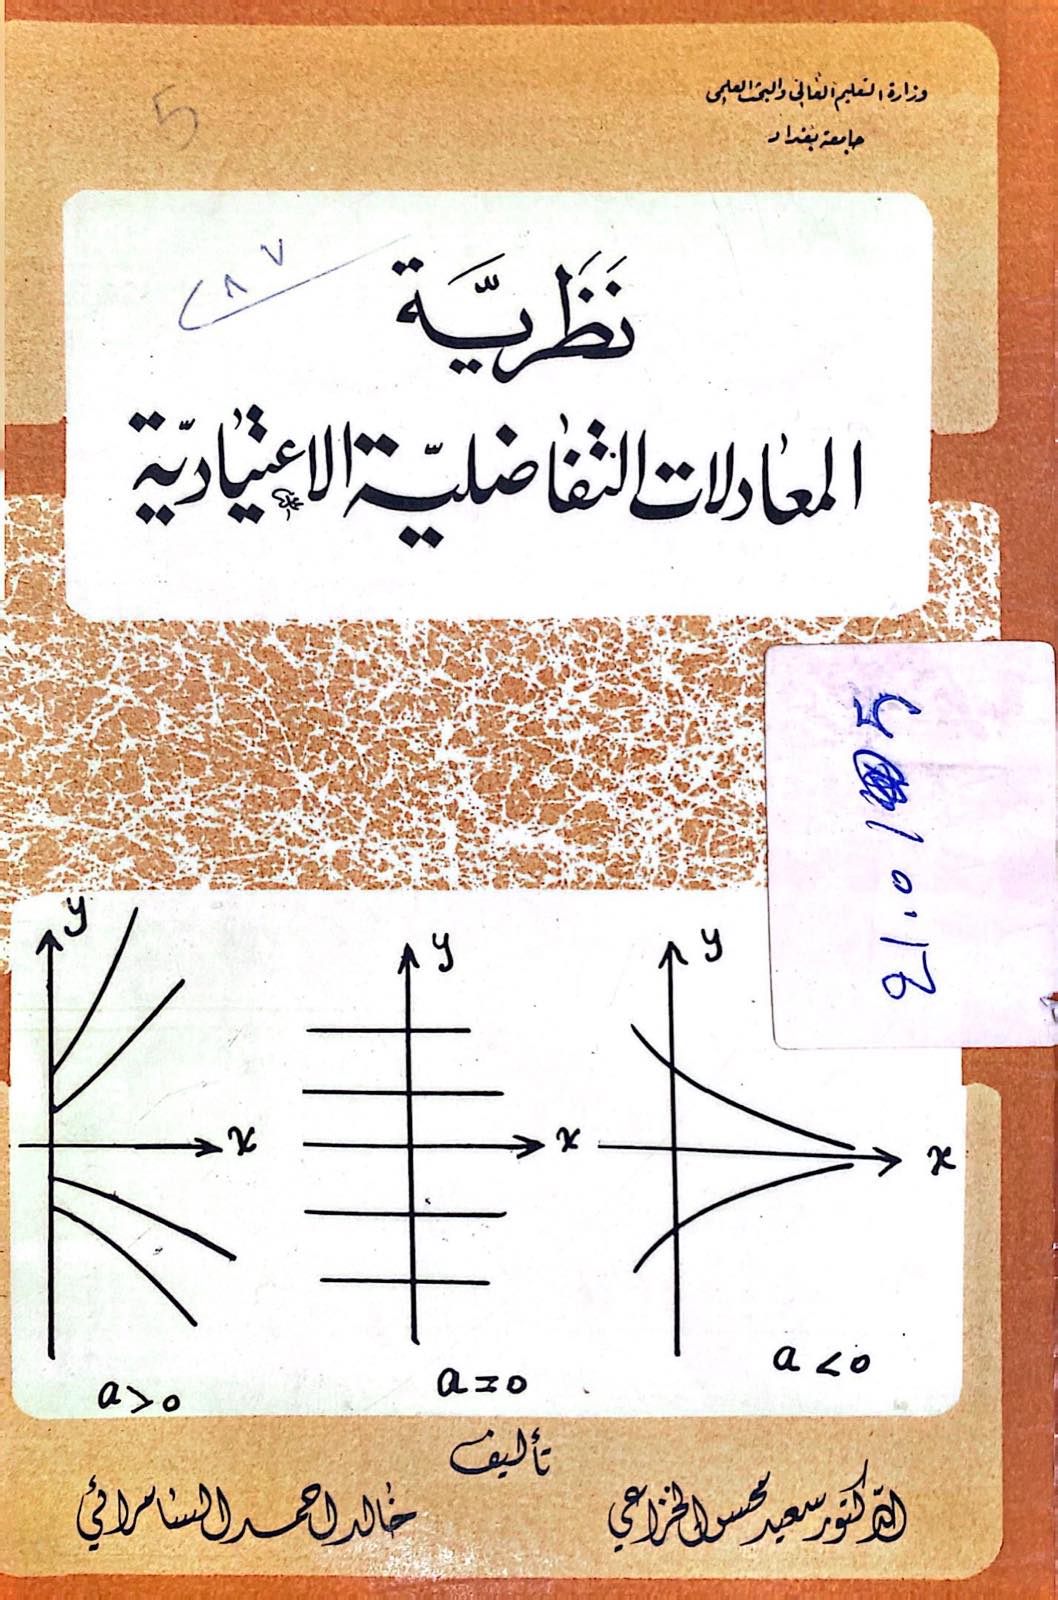 وزارة التعليم العالي والبحث العلمي
جامعة بغداد
5
٨٧
نَظَريَّة
المعادلات التفاضليّة الاعتياديّة
5
y
x
a>0
y
x
a=0
y
x
a<0
تأليف
الدكتور سعيد محسن الخزاعي
خالد احمد السامرائي